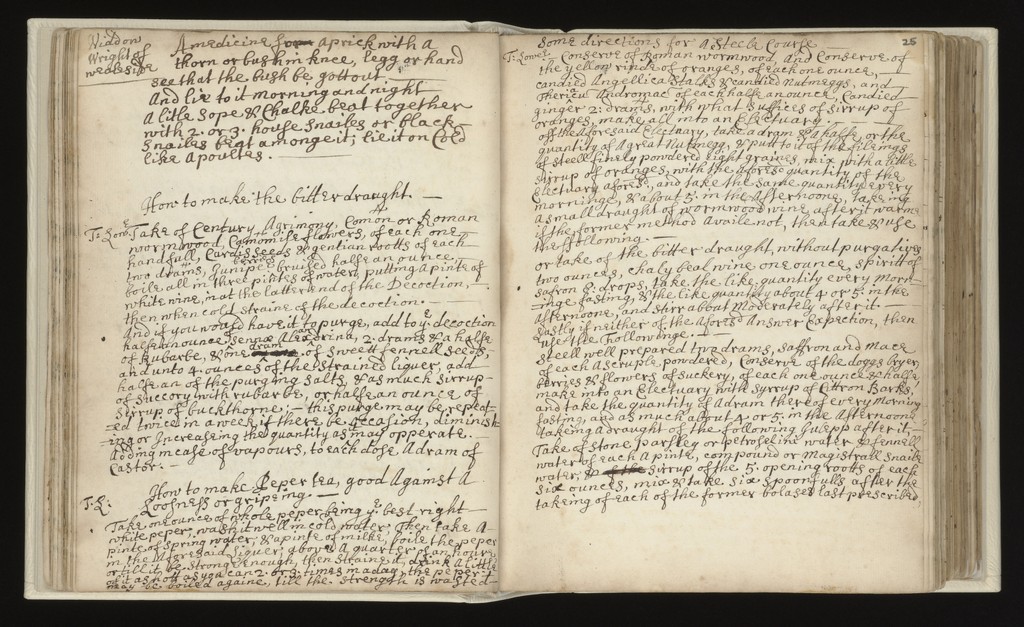 Widdow
Wright of
wealeside
A medicine for a prick with a
thorn or bush in knee, legg or hand
see that the bush be gott out.
And lie to it morning and night
A litle sope & Chalke beat together
with 2. or 3. house snailes or black
snailes beat amonge it; lie it on Cold
like A poultes.
How to make the bitter draught.
T: Low: Take of Century, Agrimony, Comon or Roman
wormwood, Comomile flowers, of each one
handfull, Cardis seeds & gentian roots of each
two drams, Juniper berries bruised halfe an ounce,
boile all in three pintes of water, putting a pinte of
white wine, in at the latter end of the Decoction,
then when cold straine of the decoction.
And if you would have it to purge, add to ye decoction
halfe an ounce of senna Alexandrina, 2. drams & a halfe
of Rubarbe, & one dram of sweett fennell seeds,
and unto 4. ounces of the strained liquer, add
halfe an of the purging salts, & as much sirrup
of succory with rubarbe, or halfe an ounce of
syrrup of buckthorne; this purge may be repeat-
ed twice in a week if there be occasion, diminish-
ing or Increasing the quantity as may opperate.
Adding in case of vapours, to each dose A dram of
Castor.
How to make Peper tea, good Against A
T: L: Loosness or gripeing
Take one ounce of whole peper being ye best right
white peper, wash it well in cold water, Then take A
pinte of spring water, & a pinte of milke, boile the peper
in the Aforesaid liquer, above A quarter of an houre,
or till it be strong enough, then straine it, drink A litle
of it as hott as you can 2. or 3. times in a day, the peper
may be boiled againe, till the strength is wasted
25
Some directions for A Steele Course
T: Lowe: Conserve of Roman wormwood, and Conserve of
the yellow rinde of oranges, of each one ounce,
candied Angellica stalks & candied Nutmeggs, and
Andromac of each halfe an ounce, Candied
ginger 2: drams, with what suffices of sirrup of
oranges, make all into an Electuary.
off the Aforesaid Electuary, take a dram & a halfe, or the
quantity of A great Nutmegg, & put to it of the fileings
of steell finely powdered eight graines, mix with a litle
sirrup of oranges, with the aforesd quantity of the
Electuary aforesd, and take the same quantity every
morninge, & about 5. in the Afternoone, takeing
A small draught of wormwood wine, after it warme
if the former method Availe not, then take & use
the following.
or take of the bitter draught, without purgatives
two ounces, chalybeal wine one ounce, spirit of
safron 8. drops, take the like quantity every Morn-
inge fasting, & the like quantity about 4 or 5. in the
Afternoone, and stirr about Moderately after it
Lastly if neither of the aforesd Answer Expection, then
use the Followinge.
Steell well prepared two drams, Saffron and Mace
of each A scruple powdered, Conserve of the doggs bryer
berries & flowers of suckery, of each one ounce & halfe,
make into an Electuary with syrrup of Cittron Barks,
and take the quantity of A dram there of every Morning
fasting, and as much about 4 or 5. in the Afternoone
takeing A draught of the following Julepp after it
Take of stone parsley or petroselini water & fennell
water of each A pinte, compound or Magistrall snaile
water, & sirrup of the 5. opening roots of each
six ounces, mix & take six spoonfulls after the
takeing of each of the former bolases last prescribed